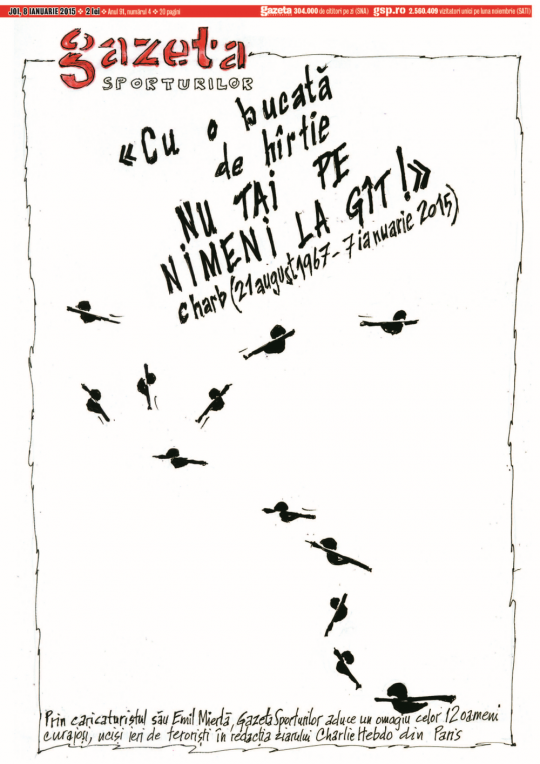 JOI, 8 IANUARIE 2015 ❖ 2 lei ❖ Anul 91, numărul 4 ❖ 20 pagini gazeta 304.000 de cititori pe zi (SNA) gsp.ro 2.560.409 vizitatori unici pe luna noiembrie (SATI)
gazeta
SPORTURILOR
«Cu o bucată
de hîrtie
NU TAI PE
NIMENI LA GÎT!»
charb (21 august 1967 - 7 ianuarie 2015)
Prin caricaturistul său Emil Mierlă, Gazeta Sporturilor aduce un omagiu celor 12 oameni
curajoși, uciși ieri de teroriști în redacția ziarului Charlie Hebdo din Paris